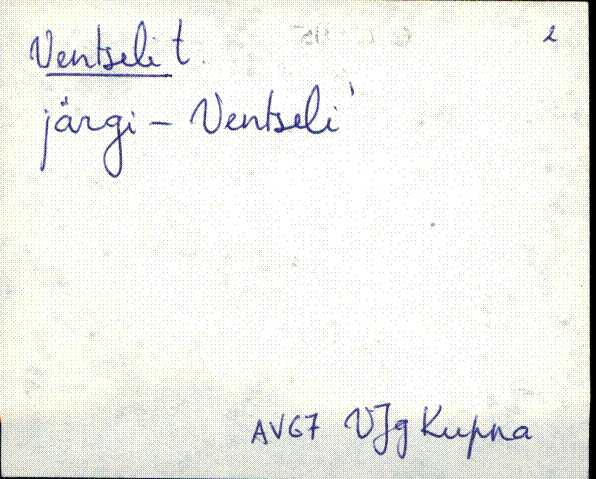 Ventseli t. 2
järgi – Ventseli'
AV67 VJg Kupna